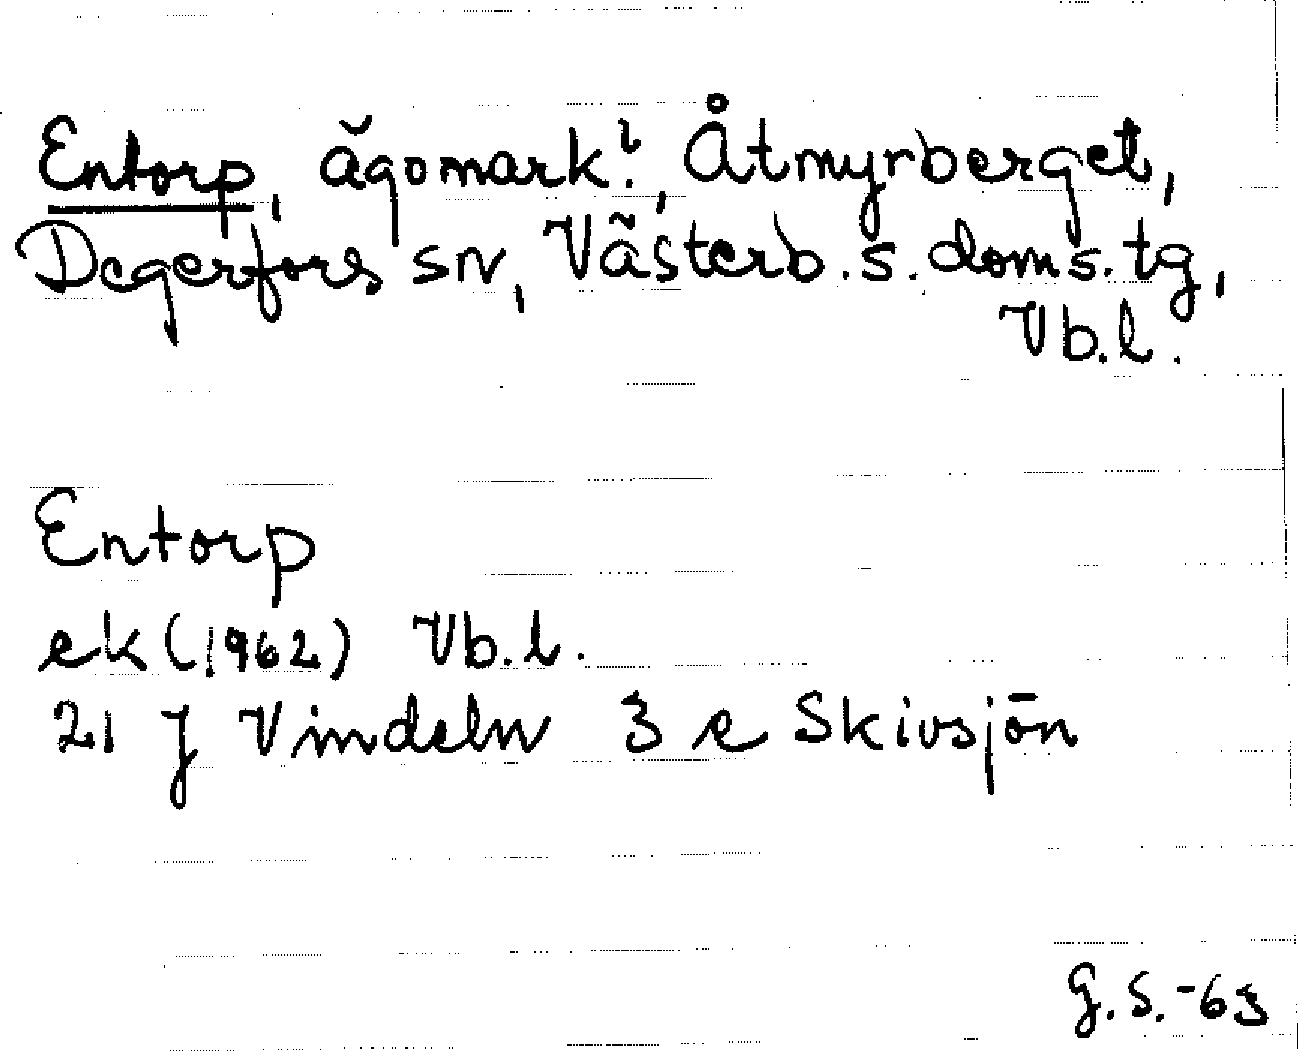 Entorp, ägomark?, Åtmyrberget,
Degerfors sn, Västerb. s. doms. tg,
Vb. l.
Entorp
ek (1962) Vb. l.
21 J Vindeln 3 e Skivsjön
G. S. -63